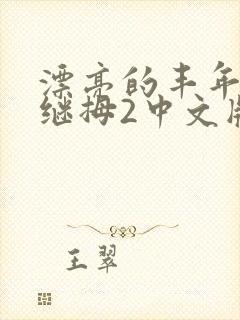 漂亮的丰年
继拇2中文版
王翠